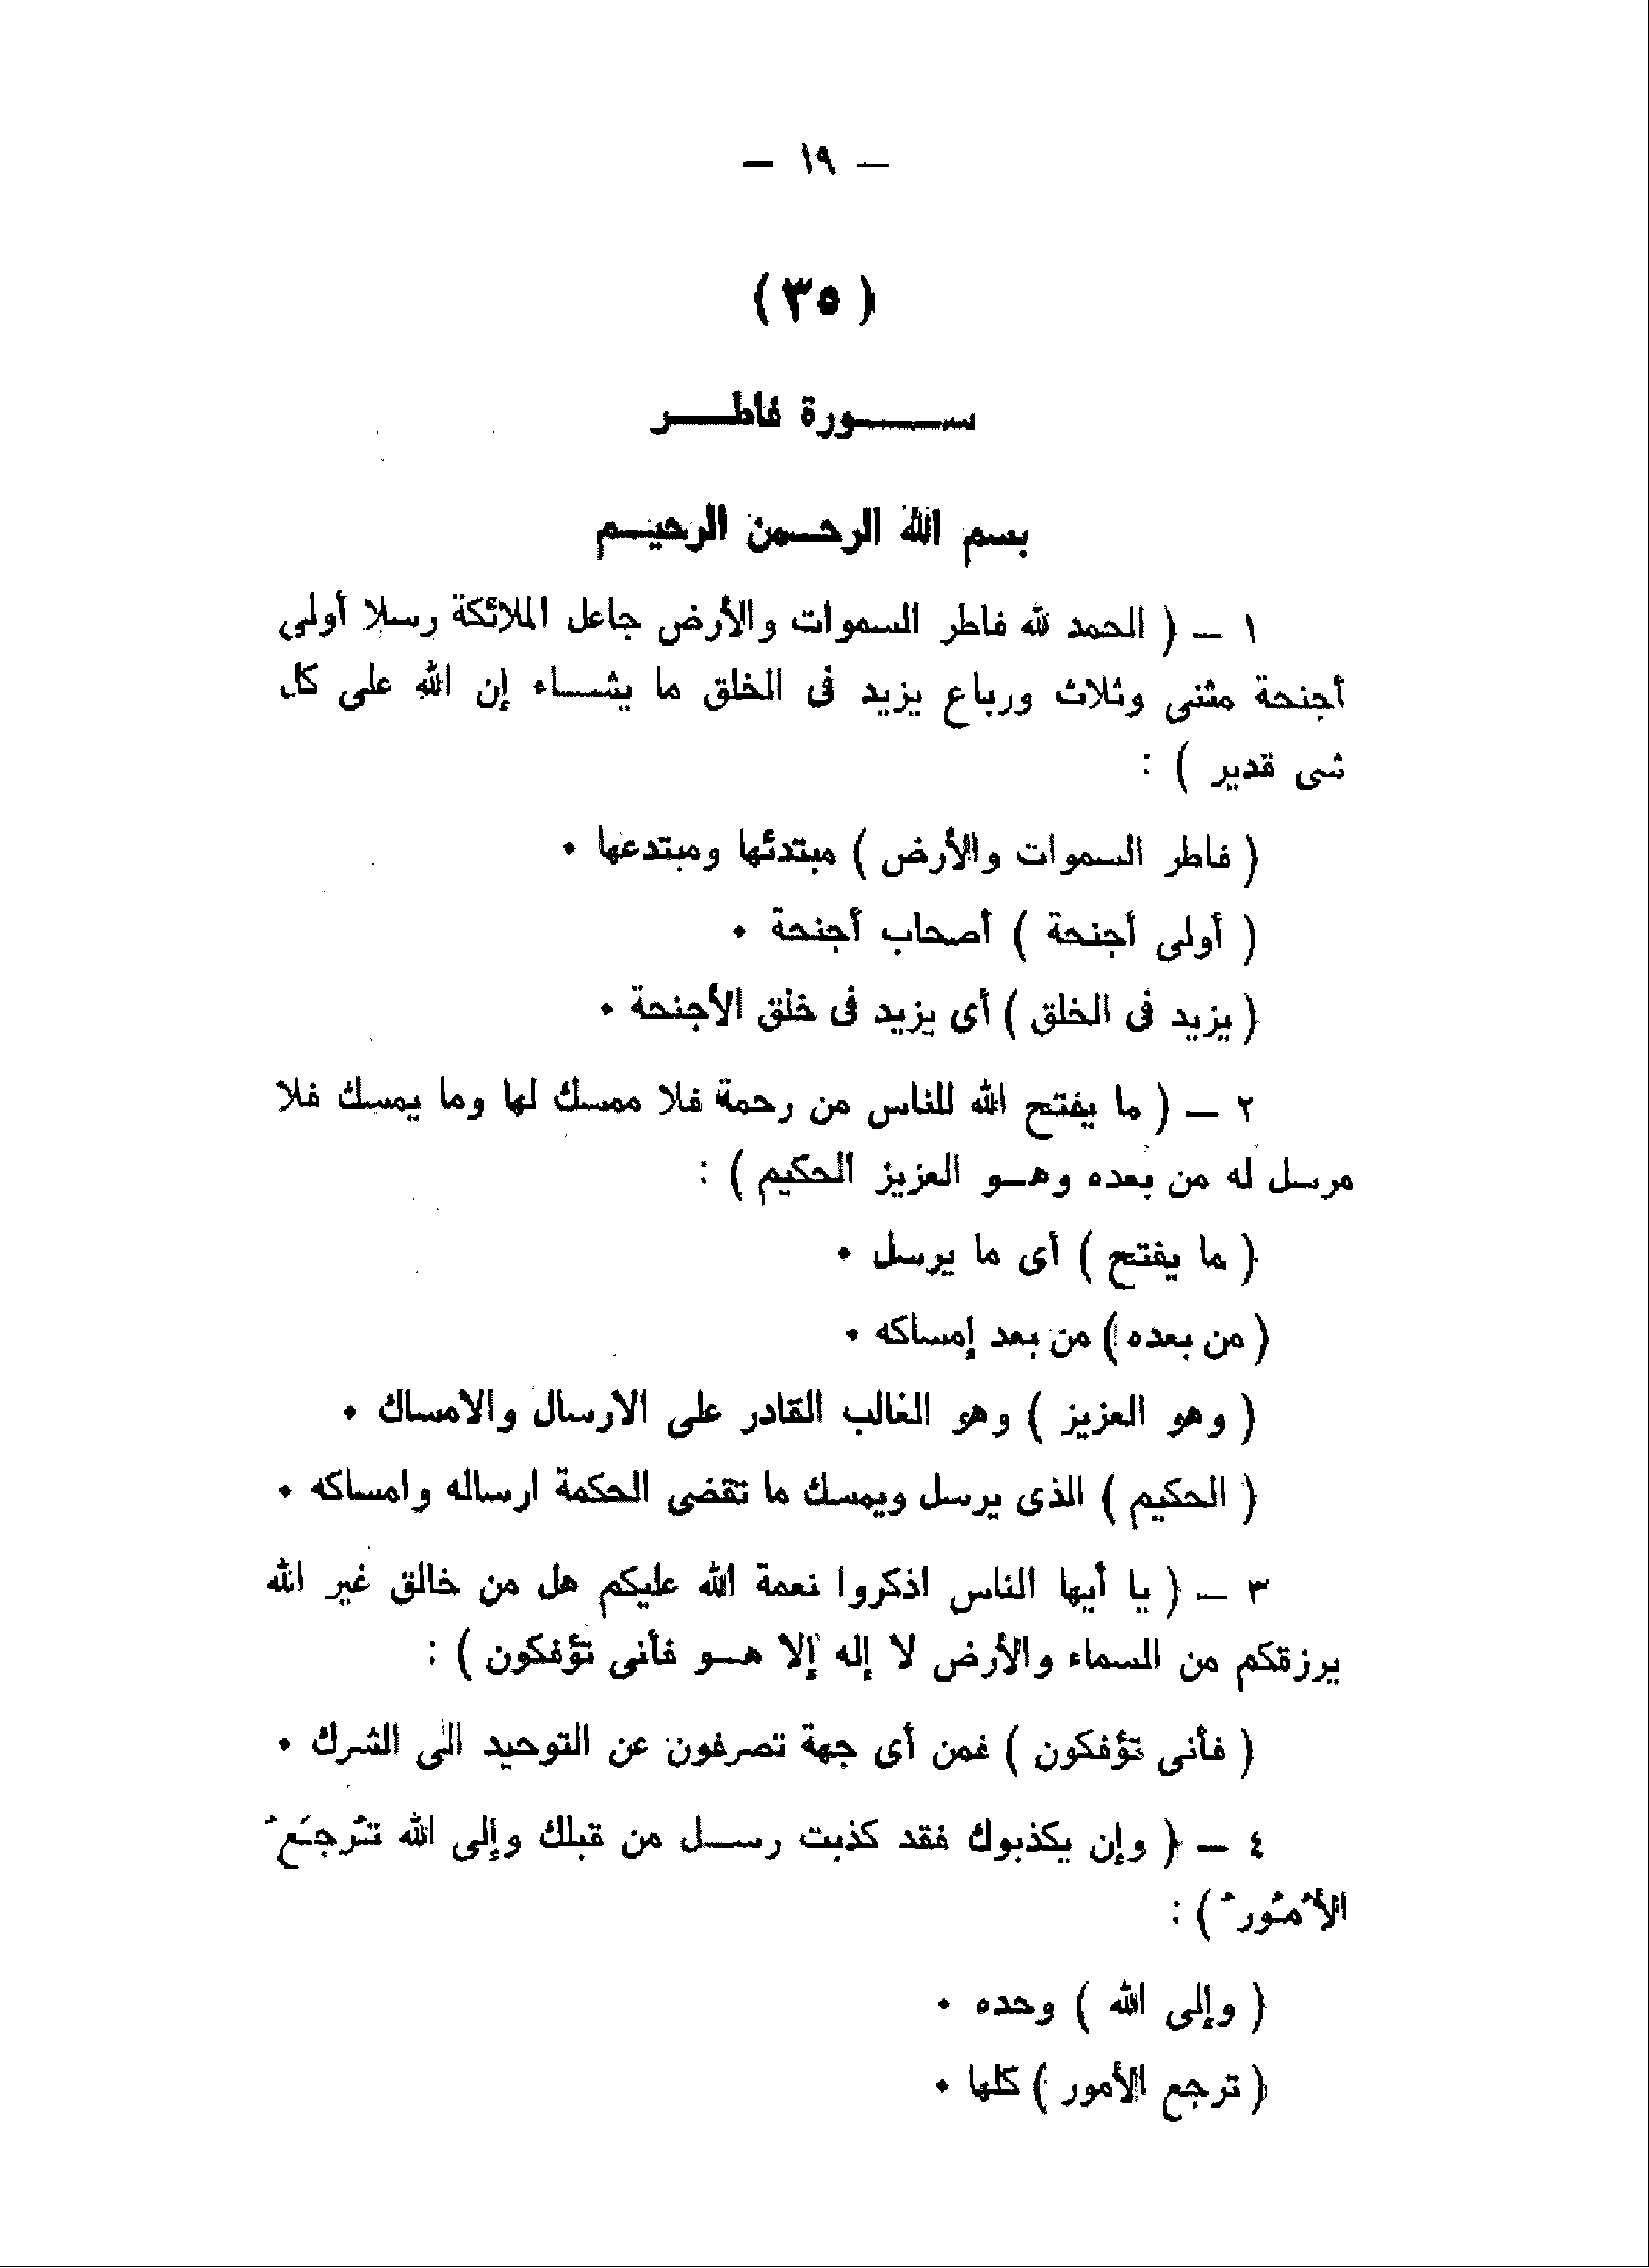 — ١٩ —
( ٣٥ )
سورة فاطر
بسم الله الرحمن الرحيم
١ — ( الحمد لله فاطر السموات والأرض جاعل الملائكة رسلا أولى
أجنحة مثنى وثلاث ورباع يزيد فى الخلق ما يشاء إن الله على كل
شى قدير ) :
( فاطر السموات والأرض ) مبتدئها ومبتدعها .
( أولى أجنحة ) أصحاب أجنحة .
( يزيد فى الخلق ) أى يزيد فى خلق الأجنحة .
٢ — ( ما يفتح الله للناس من رحمة فلا ممسك لها وما يمسك فلا
مرسل له من بعده وهو العزيز الحكيم ) :
( ما يفتح ) أى ما يرسل .
( من بعده ) من بعد إمساكه .
( وهو العزيز ) وهو الغالب القادر على الارسال والامساك .
( الحكيم ) الذى يرسل ويمسك ما تقضى الحكمة ارساله وامساكه .
٣ — ( يا أيها الناس اذكروا نعمة الله عليكم هل من خالق غير الله
يرزقكم من السماء والأرض لا إله إلا هو فأنى تؤفكون ) :
( فأنى تؤفكون ) فمن أى جهة تصرفون عن التوحيد الى الشرك .
٤ — ( وإن يكذبوك فقد كذبت رسل من قبلك وإلى الله تُرجَعُ
الأُمُورُ ) :
( وإلى الله ) وحده .
( ترجع الأمور ) كلها .